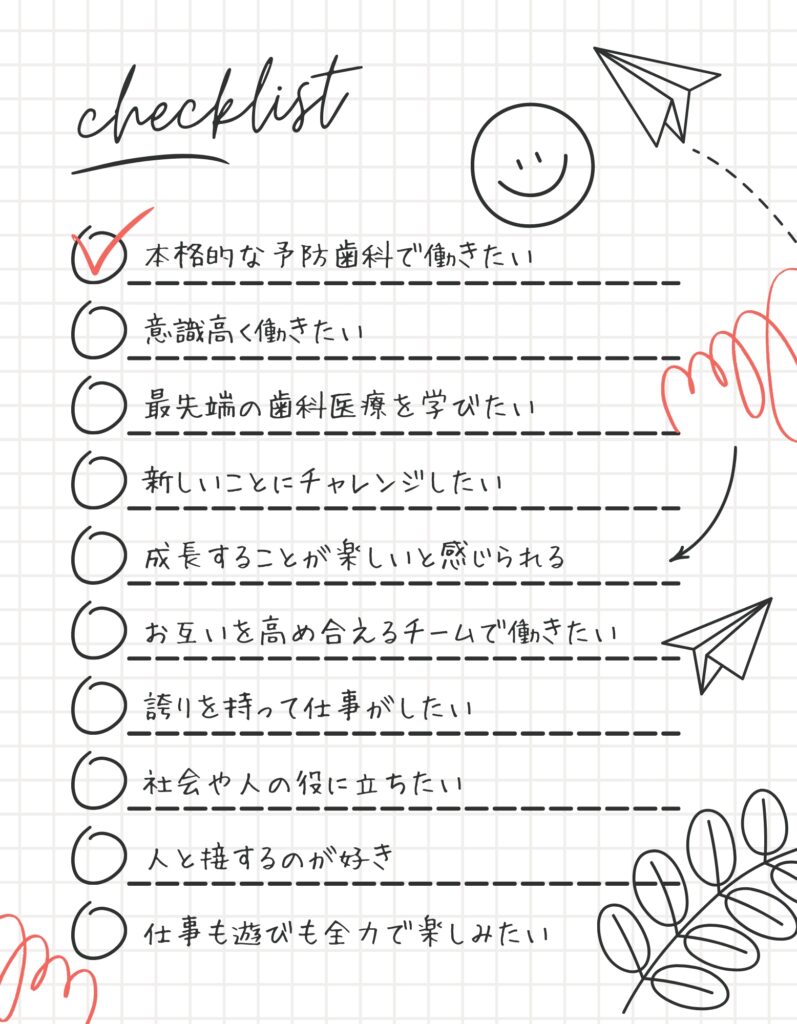 checklist
本格的な予防歯科で働きたい
意識高く働きたい
最先端の歯科医療を学びたい
新しいことにチャレンジしたい
成長することが楽しいと感じられる
お互いを高め合えるチームで働きたい
誇りを持って仕事がしたい
社会や人の役に立ちたい
人と接するのが好き
仕事も遊びも全力で楽しみたい